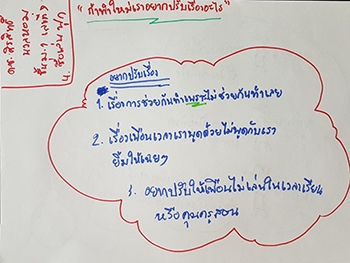 "ถ้าทำใหม่เราอยากปรับเรื่องอะไร"
อยากปรับเรื่อง
1. เรื่องการช่วยกันทำเพราะไม่ช่วยกันทำเลย
2. เรื่องเพื่อนเวลาเราพูดด้วยไม่พูดกับเรา
ยิ้มให้เฉยๆ
3. อยากปรับให้เพื่อนไม่เล่นในเวลาเรียน
หรือคุณครูสอน